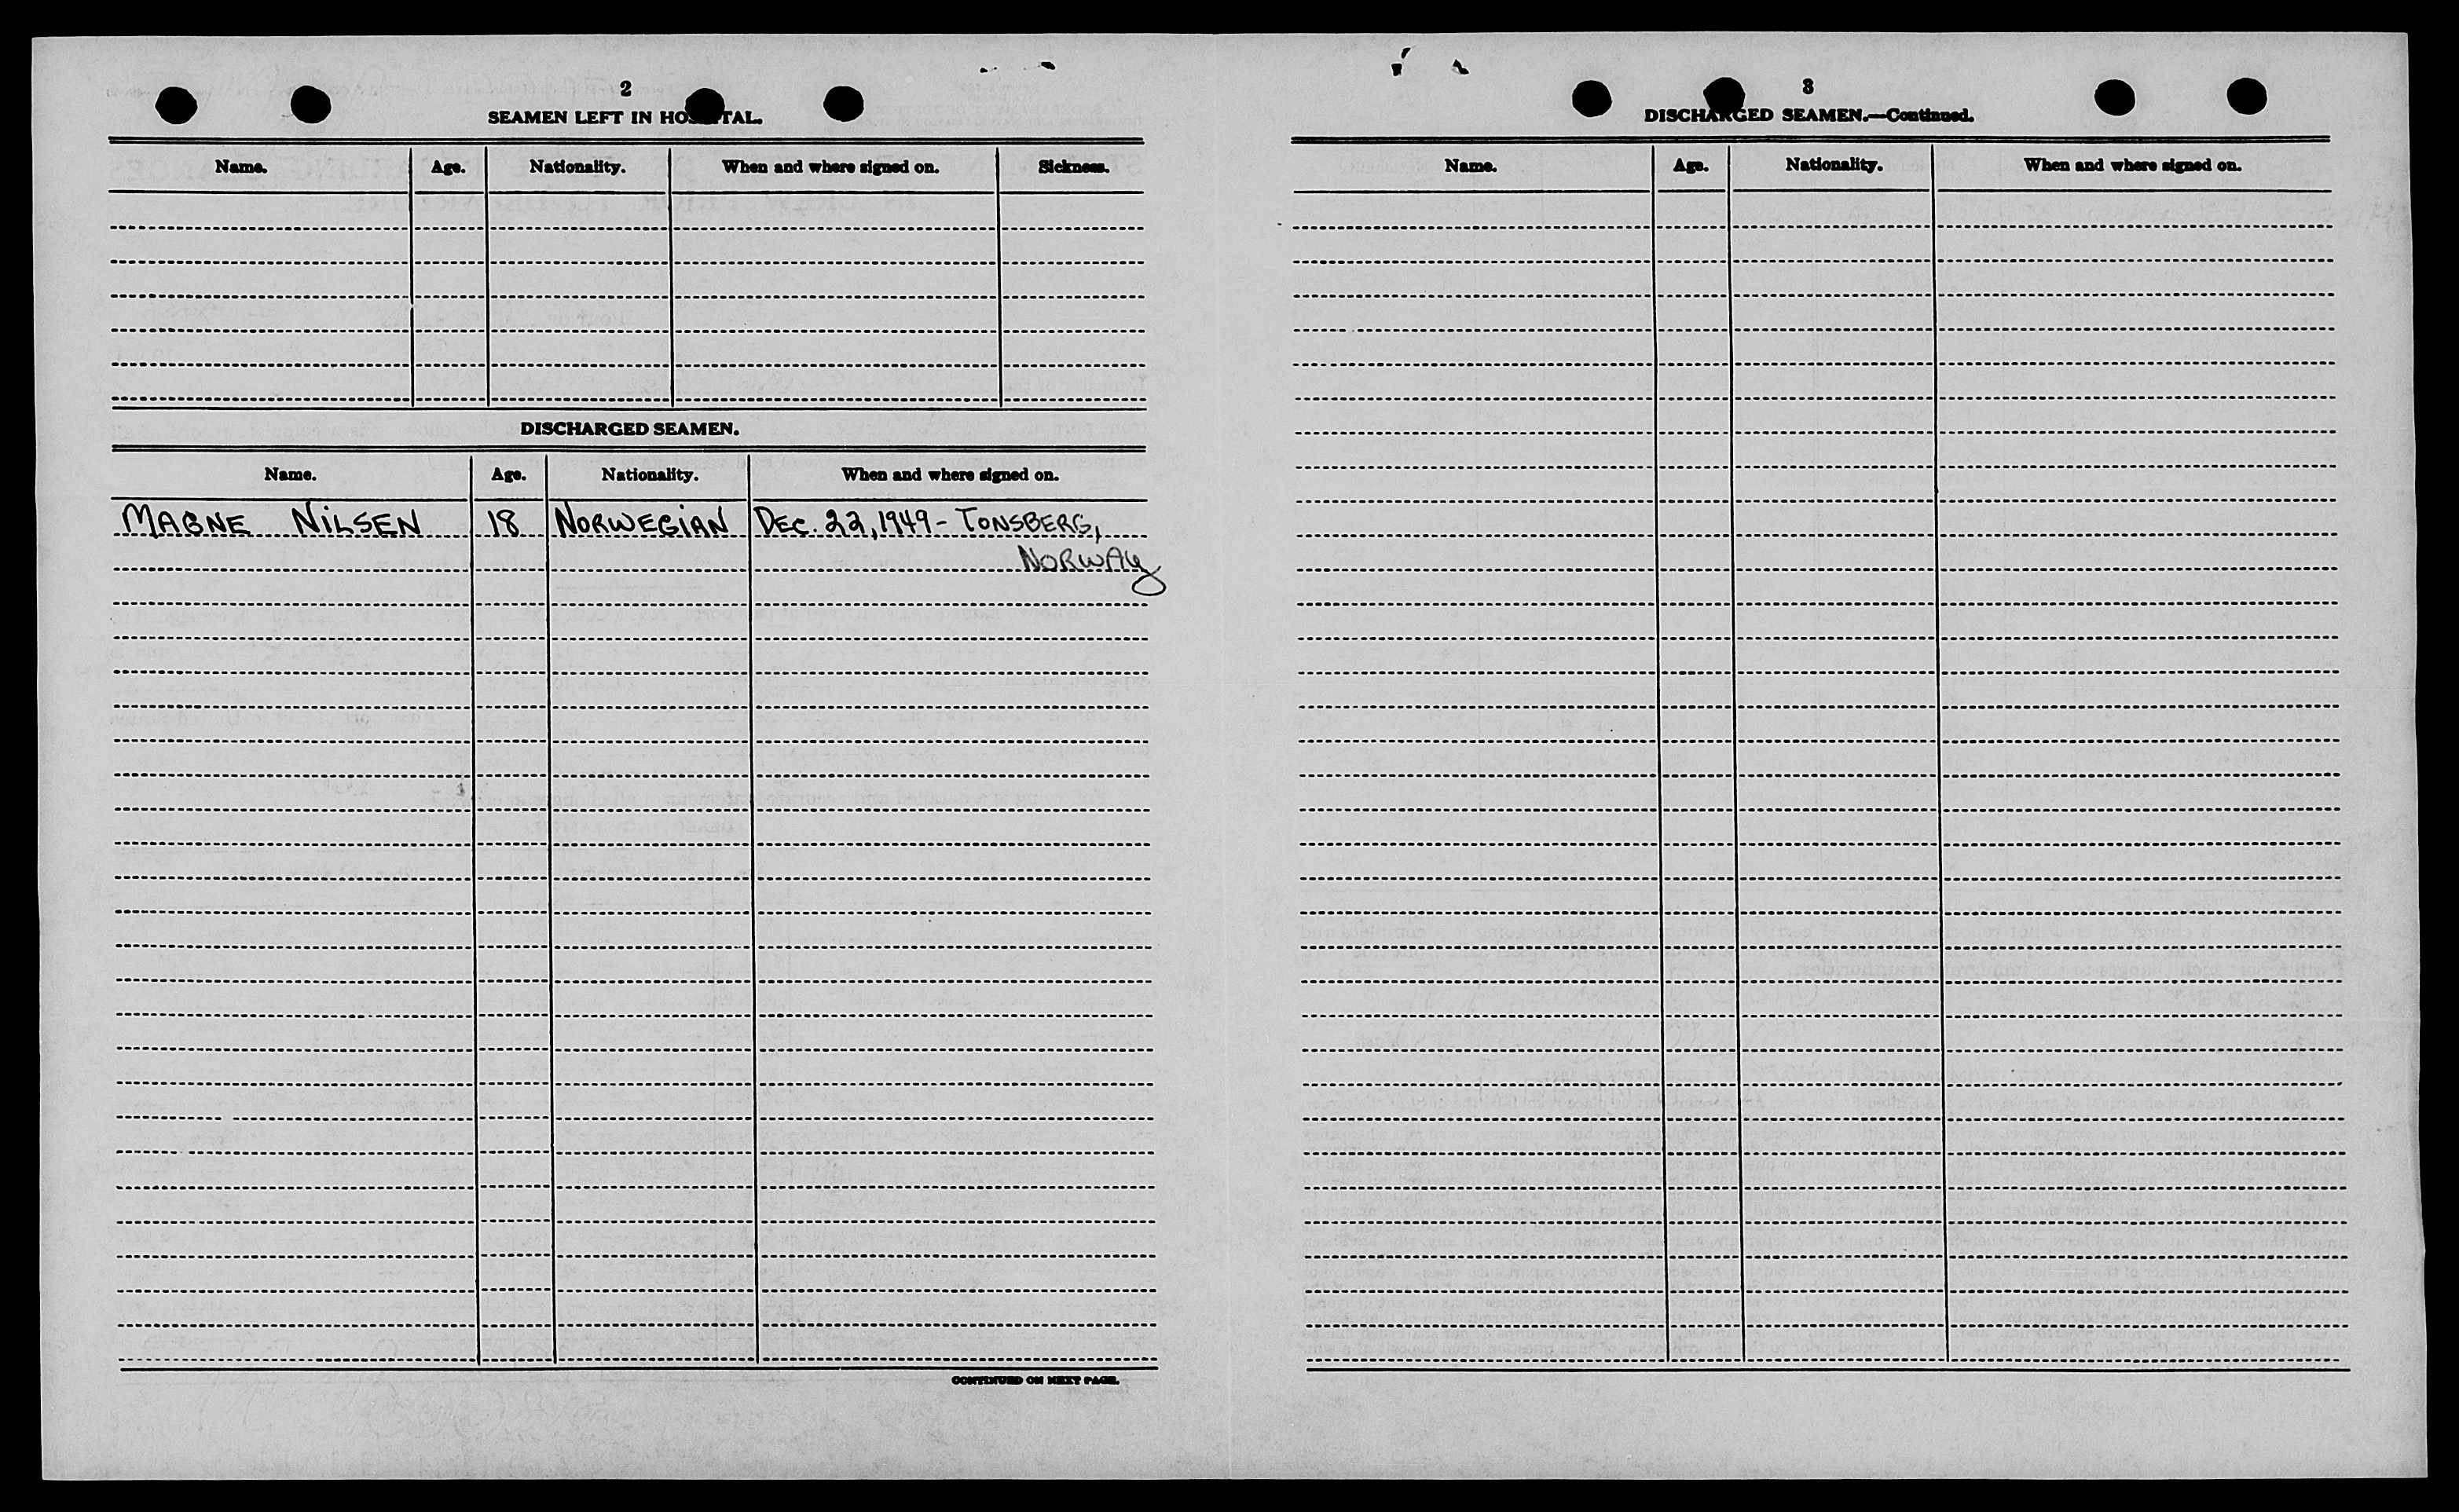 2
SEAMEN LEFT IN HOSPITAL.
Name. Age. Nationality. When and where signed on. Sickness.
DISCHARGED SEAMEN.
Name. Age. Nationality. When and where signed on.
MAGNE NILSEN 18 NORWEGIAN DEC. 22, 1949 - TONSBERG,
NORWAY
CONTINUED ON NEXT PAGE.
3
DISCHARGED SEAMEN.—Continued.
Name. Age. Nationality. When and where signed on.